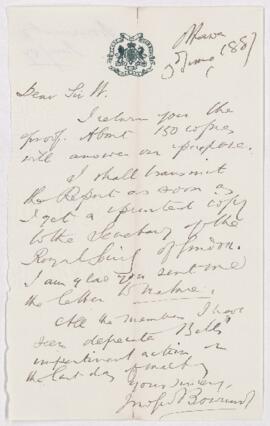 Ottawa
3 June 1887
Dear Sir W.
I return you the
proof. About 150 copies
will answer our purpose.
I shall transmit
the Report as soon as
I get a printed copy
to the Secretary of the
Royal Soc. of London.
I am glad you sent me
the letter to Nature.
All the members I have
seen deprecate Bell's
impertinent action on
the last day of meeting
yours sincerely,